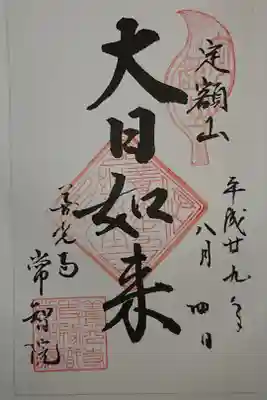 定額山
平成廿九年
八月四日
大日如来
善光寺
常智院